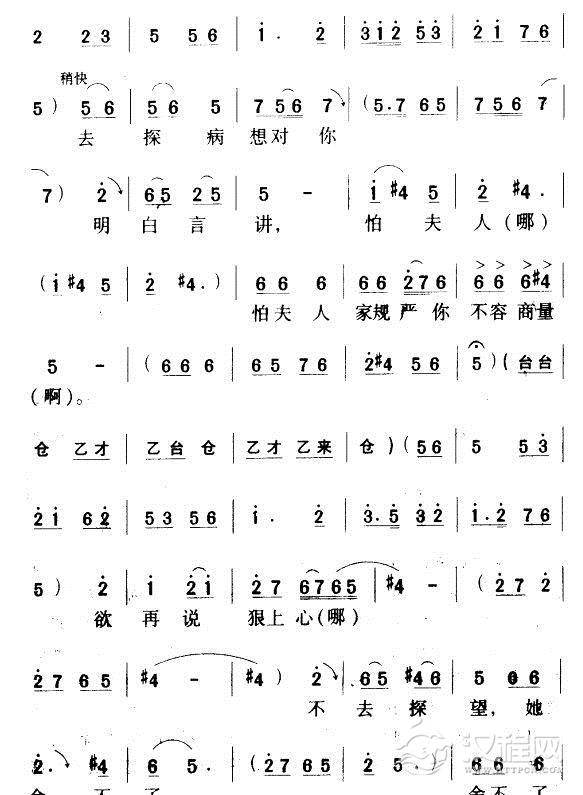 2 2 3 | 5 5 6 | i . 2 | 3 i 2 5 3 | 2 i 7 6
稍快
5 ) 5 6 | 5 6 5 | 7 5 6 7 | ( 5 . 7 6 5 | 7 5 6 7
去 探 病 想对 你
7 ) 2 | 6 5 2 5 | 5 - | i #4 5 | 2 #4 .
明 白 言 讲, 怕 夫 人 (哪)
( i #4 5 | 2 #4 . ) | 6 6 6 | 6 6 2 7 6 | 6 6 6 #4
怕夫 人 家规 严 你 不容 商量
5 - | ( 6 6 6 | 6 5 7 6 | 2 #4 5 6 | 5 ) ( 台台
(啊)。
仓 乙才 | 乙台 仓 | 乙才 乙来 | 仓 ) ( 5 6 | 5 5 3
2 i 6 2 | 5 3 5 6 | i . 2 | 3 . 5 3 2 | i . 2 7 6
5 ) 2 | i 2 i | 2 7 6 7 6 5 | #4 - | ( 2 7 2
欲 再 说 狠上 心(哪)
2 7 6 5 | #4 - | #4 ) 2 | 6 5 #4 6 | 5 0 6 6
不 去 探 望, 她
2 . #4 | 6 5 . | ( 2 7 6 5 | 2 5 . ) | 6 6 6
汉程网